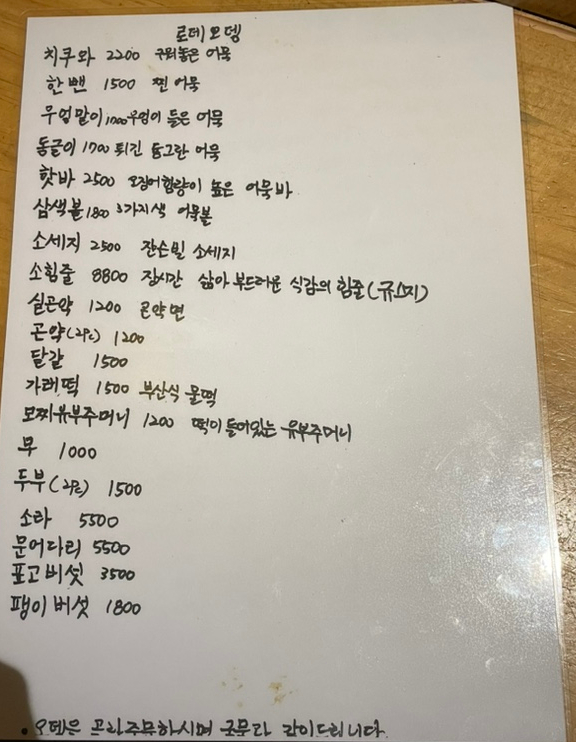 로데오뎅
치쿠와 2200 구워놓은 어묵
한뺀 1500 찐 어묵
우엉말이 1700 우엉이 들은 어묵
동글이 1700 튀긴 동그란 어묵
핫바 2500 오징어함량이 높은 어묵바
삼색볼 1800 3가지색 어묵볼
소세지 2500 잔슨빌 소세지
소힘줄 8800 장시간 삶아 부드러운 식감의 힘줄(규스지)
실곤약 1200 곤약면
곤약(2PC) 1200
달걀 1500
가래떡 1500 부산식 물떡
모찌유부주머니 1200 떡이 들어있는 유부주머니
무 1000
두부(2PC) 1500
소라 5500
문어다리 5500
표고버섯 3500
팽이버섯 1800
• 오뎅은 주문하시면 국물과 같이드립니다